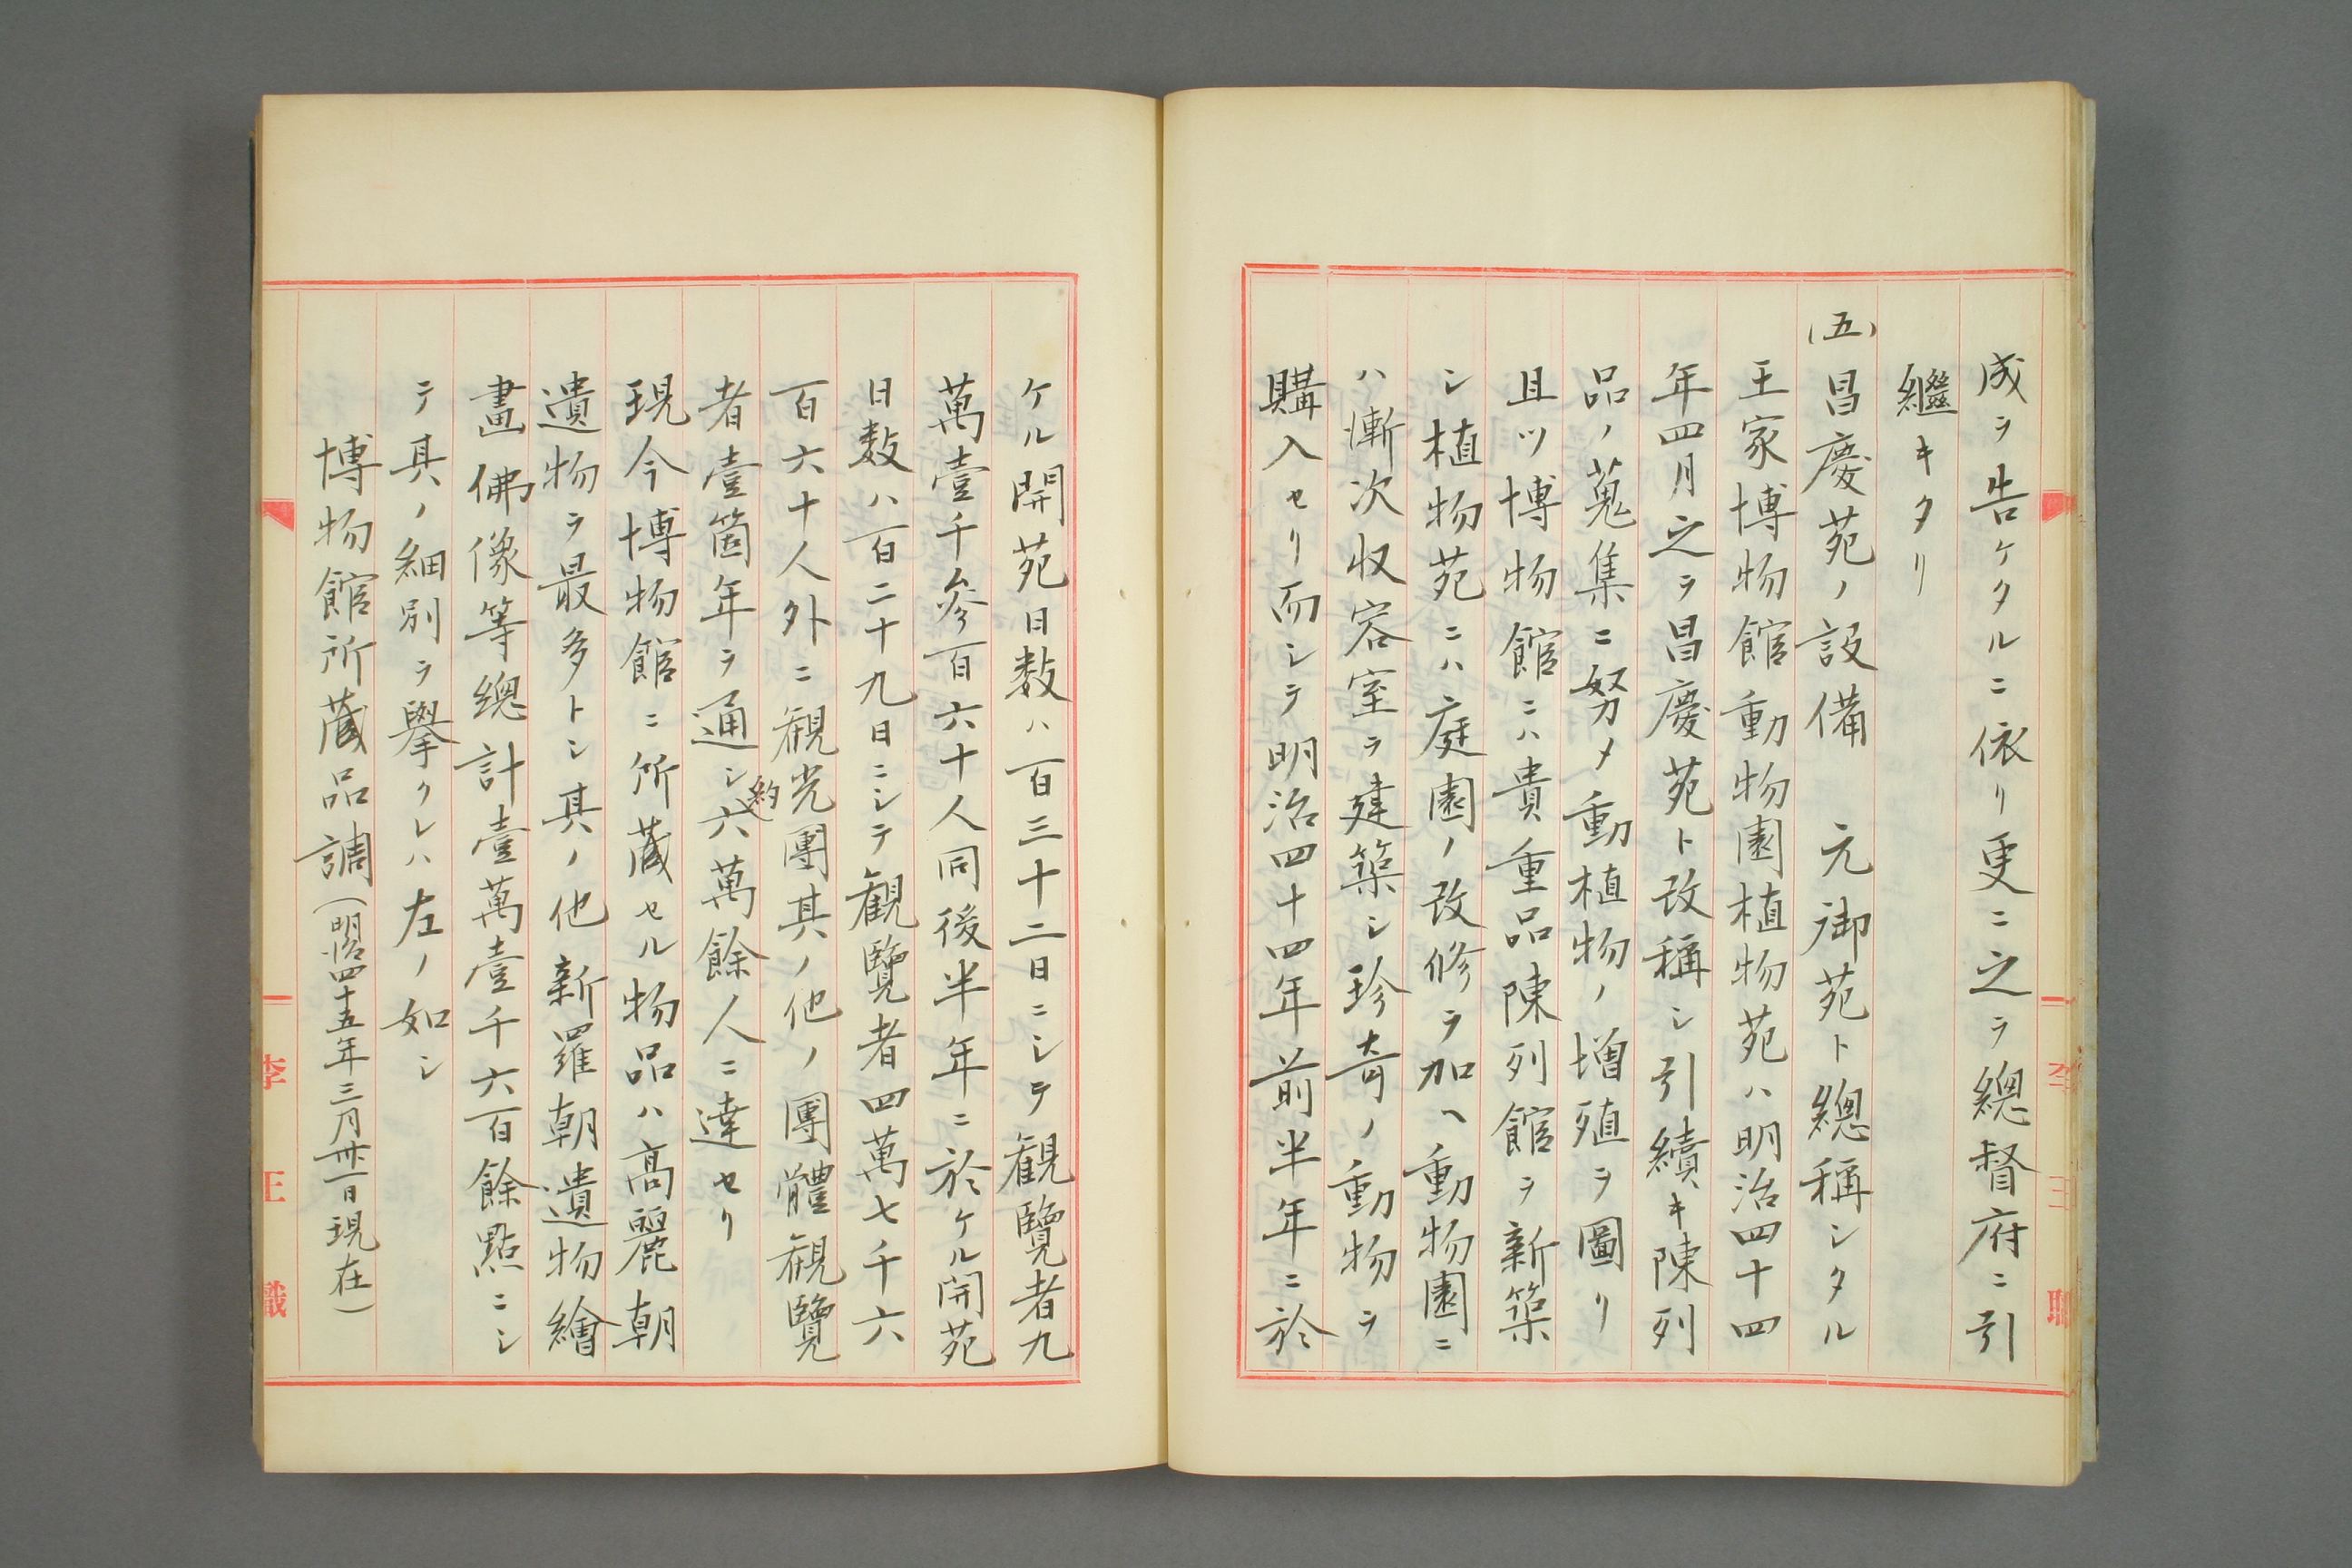 成ヲ告ケタルニ依リ更ニ之ヲ總督府ニ引
繼キタリ
(五)昌慶苑ノ設備 元御苑ト總稱シタル
王家博物館動物園植物苑ハ明治四十四
年四月之ヲ昌慶苑ト改稱シ引續キ陳列
品ノ蒐集ニ努メ動植物ノ増殖ヲ圖リ
且ツ博物館ニハ貴重品陳列館ヲ新築
シ植物苑ニハ庭園ノ改修ヲ加ヘ動物園ニ
ハ漸次収容室ヲ建築シ珍奇ノ動物ヲ
購入セリ而シテ明治四十四年前半年ニ於
ケル開苑日数ハ百三十二日ニシテ観覽者九
萬壹千參百六十人同後半年ニ於ケル開苑
日数ハ百二十九日ニシテ観覽者四萬七千六
百六十人外ニ観光團其ノ他ノ團體観覽
者壹箇年ヲ通シ約六萬餘人ニ達セリ
現今博物館ニ所蔵セル物品ハ髙麗朝
遺物ヲ最多トシ其ノ他新羅朝遺物繪
畫佛像等總計壹萬壹千六百餘點ニシ
テ其ノ細別ヲ擧クレハ左ノ如シ
博物館所蔵品調(明治四十五年三月卅一日現在)
李王職